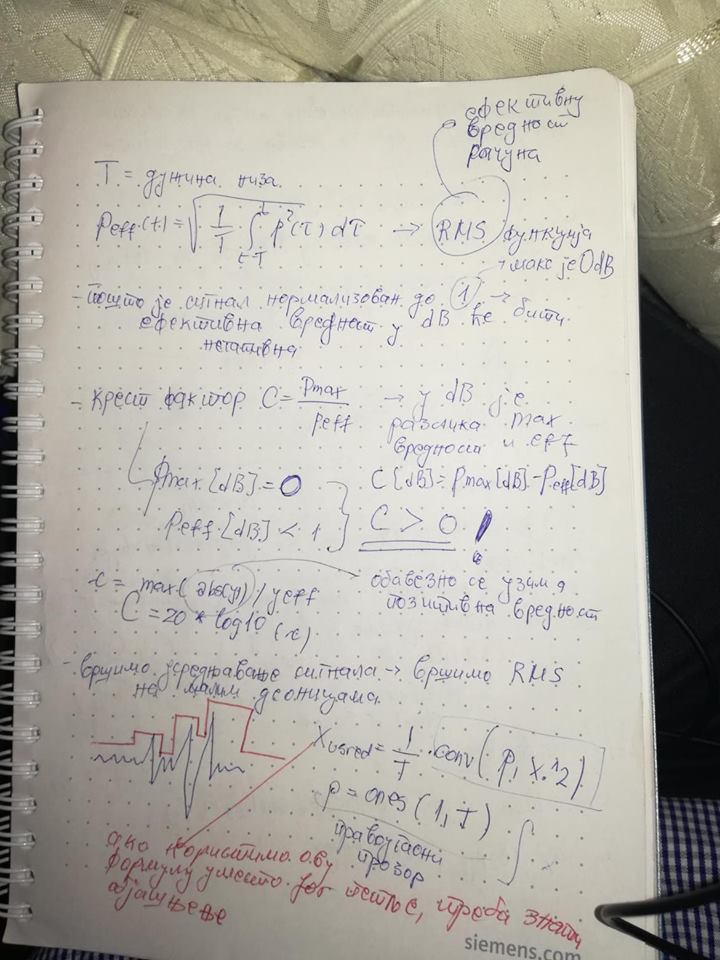 ефективну
вредност
рачуна
T = дужина низа.
Peff(t) = √ 1/T ∫ t-T t p²(τ) dτ → RMS функција
→ макс је 0dB
- пошто је сигнал нормализован до 1 →
ефективна вредност у dB ће бити
негативна
- Крест фактор C = Pmax / Peff → у dB је
разлика max
вредности и eff
Pmax [dB] = 0
C [dB] = Pmax [dB] - Peff [dB]
Peff [dB] < 1
C > 0 !
c = max(abs(y)) / yeff
обавезно се узима
позитивна вредност
C = 20 * log10 (c)
- вршимо усредњавање сигнала → вршимо RMS
на малим деоницама
Xusred = 1/T · conv(p, x.^2)
p = ones(1, T)
правоугаони
прозор
∫
ако користимо ову
формулу уместо for петље, треба знати
објашњење
siemens.com